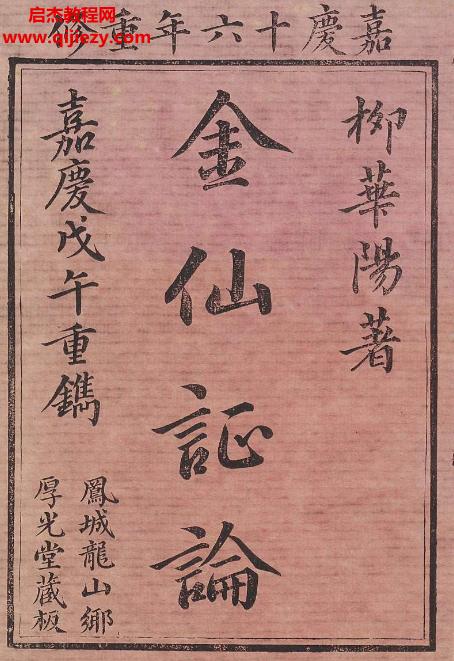 启杰教程网
www.qijiezy.com
嘉慶十六年重修
柳華陽著
金仙証論
嘉慶戊午重鐫
鳳城龍山鄉
厚光堂藏板